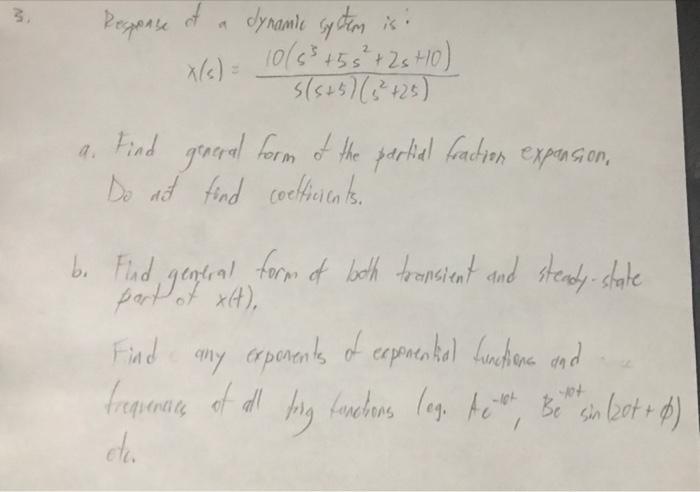 3. Response of a dynamic system is:
x(s) = 10(s³ + 5s² + 2s + 10) / s(s+5)(s² + 25)
a. Find general form of the partial fraction expansion.
Do not find coefficients.
b. Find general form of both transient and steady-state
part of x(t).
Find any exponents of exponential functions and
frequencies of all trig functions (eg. Ae⁻¹⁰ᵗ, Be⁻¹⁰ᵗ sin(20t + ϕ)
etc.